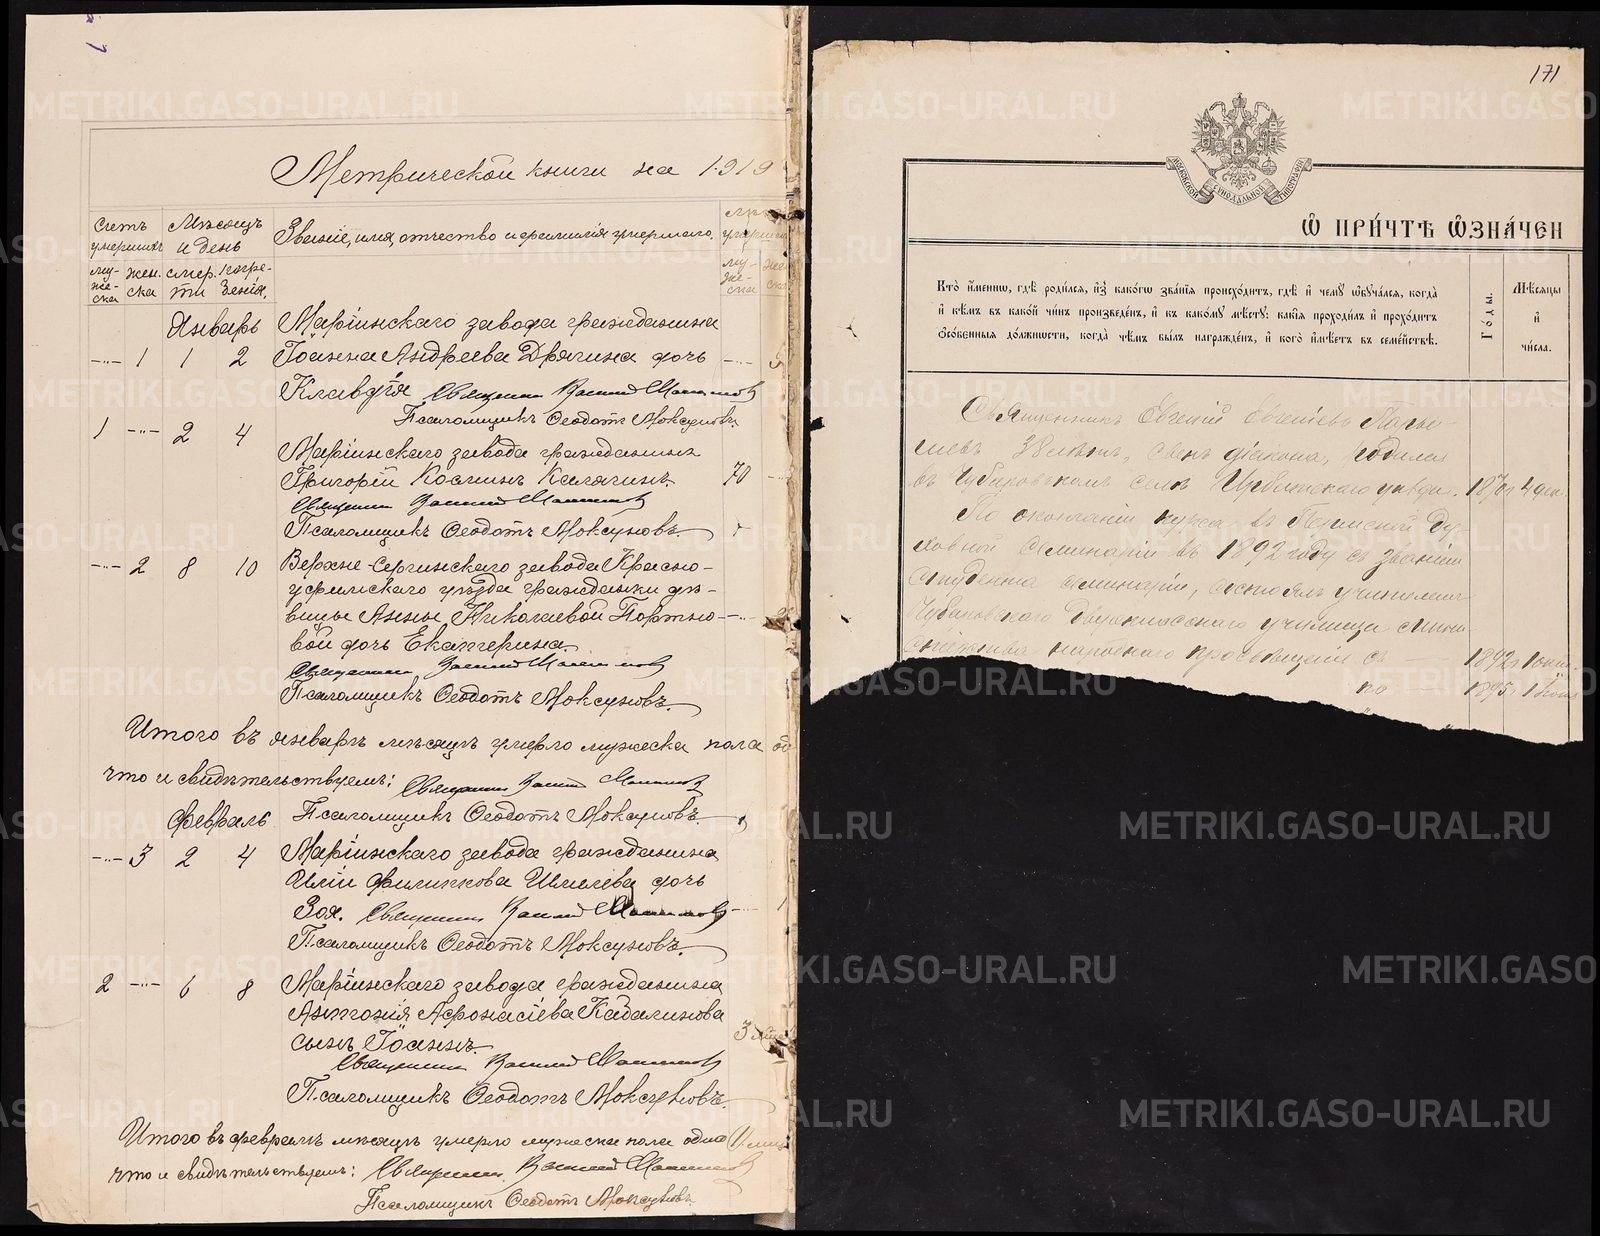 Метрической книги на 1919
Счетъ умершихъ
Мѣсяцъ и день
Званіе, имя, отчество и фамилія умершаго.
му-жеска
жен. ска
смер. ти
погре-бенія.
му-же-ска
Январь
Маріинскаго завода гражданина
1 1 2 Іоанна Андреева Дрягина дочь
Клавдія Священник
Псаломщикъ Ѳеодотъ Моксуновъ.
1 2 4
Маріинскаго завода гражданинъ
Григорій Косминъ Калягинъ. 70
Священник
Псаломщикъ Ѳеодотъ Моксуновъ.
2 8 10 Верхне-Сергинскаго завода Красно-
уфимскаго уѣзда гражданки дѣ-
вицы Анны Николаевой Портно-
вой дочь Екатерина.
Священник
Псаломщикъ Ѳеодотъ Моксуновъ.
Итого въ январѣ мѣсяцѣ умерло мужеска пола
что и свидѣтельствуемъ: Священник
Февраль Псаломщикъ Ѳеодотъ Моксуновъ.
3 2 4 Маріинскаго завода гражданина
Иліи Филиппова Шмелёва дочь
Зоя. Священник
Псаломщикъ Ѳеодотъ Моксуновъ.
2 6 8 Маріинскаго завода гражданина
Антонія Афонасіева Кадалинова
сынъ Іоаннъ. 3
Священник
Псаломщикъ Ѳеодотъ Моксуновъ.
Итого въ февралѣ мѣсяцѣ умерло мужеска пола одна
что и свидѣтельствуемъ: Священник
Псаломщикъ Ѳеодотъ Моксуновъ.
171
МОСКОВСКОЙ СѴНОДАЛЬНОЙ ТИПОГРАФІИ
Ѡ ПРИ́ЧТѢ ѠЗНА́ЧЕН
Кто̀ и҆́меннѡ, гдѣ̀ роди́лсѧ, и҆з̾ како́гѡ зва́нїѧ происхо́дитъ, гдѣ̀ и҆ чемꙋ̀ ѡ҆бꙋча́лсѧ, когда̀
и҆ кѣ́мъ въ какѡ́й чи́нъ произведе́нъ, и҆ къ како́мꙋ мѣ́стꙋ: какїѧ проходи́лъ и҆ прохо́дитъ
ѻ҆со́бенныѧ до́лжности, когда̀ чѣ́мъ бы́лъ награжде́нъ, и҆ кого̀ и҆мѣ́етъ въ семе́йствѣ.
Го́ды.
Мѣ́сѧцы
и҆
чи́сла.
Священникъ Евгеній Евгеніевъ
38 лѣтъ, сынъ діакона, родился
въ Чубаровскомъ селѣ Ирбитскаго уѣзда. 1870 4 дек.
По окончаніи курса въ Пермской Ду-
ховной семинаріи въ 1892 году съ званіемъ
студента семинаріи, состоялъ учителемъ
Чубаровскаго Двухкласснаго училища мини-
стерства народнаго просвѣщенія съ 1892
по 1895
METRIKI.GASO-URAL.RU